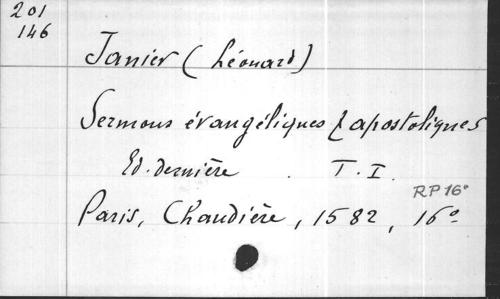 201
146
Janier (Léonard)
Sermons évangéliques & apostoliques
Ed. dernière . T. I.
RP 16°
Paris, Chaudière, 1582, 16°